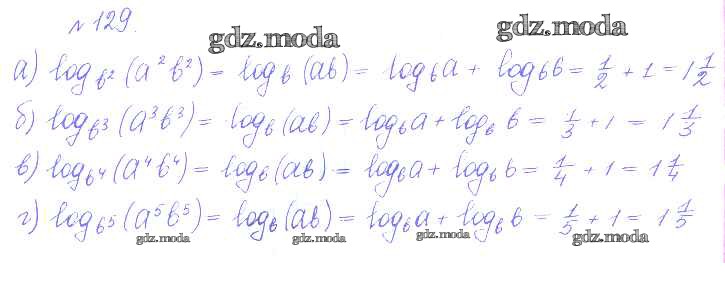 № 129.
gdz.moda gdz.moda
а) log_{b^2}(a^2b^2) = log_b(ab) = log_b a + log_b b = 1/2 + 1 = 1 1/2
б) log_{b^3}(a^3b^3) = log_b(ab) = log_b a + log_b b = 1/3 + 1 = 1 1/3
в) log_{b^4}(a^4b^4) = log_b(ab) = log_b a + log_b b = 1/4 + 1 = 1 1/4
г) log_{b^5}(a^5b^5) = log_b(ab) = log_b a + log_b b = 1/5 + 1 = 1 1/5
gdz.moda gdz.moda gdz.moda gdz.moda